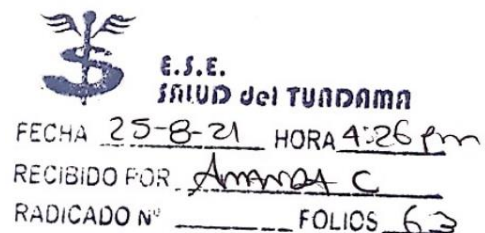 E.S.E.
SALUD del TUNDAMA
FECHA 25-8-21 HORA 4:26 pm
RECIBIDO POR AMANDA C
RADICADO Nº FOLIOS 63